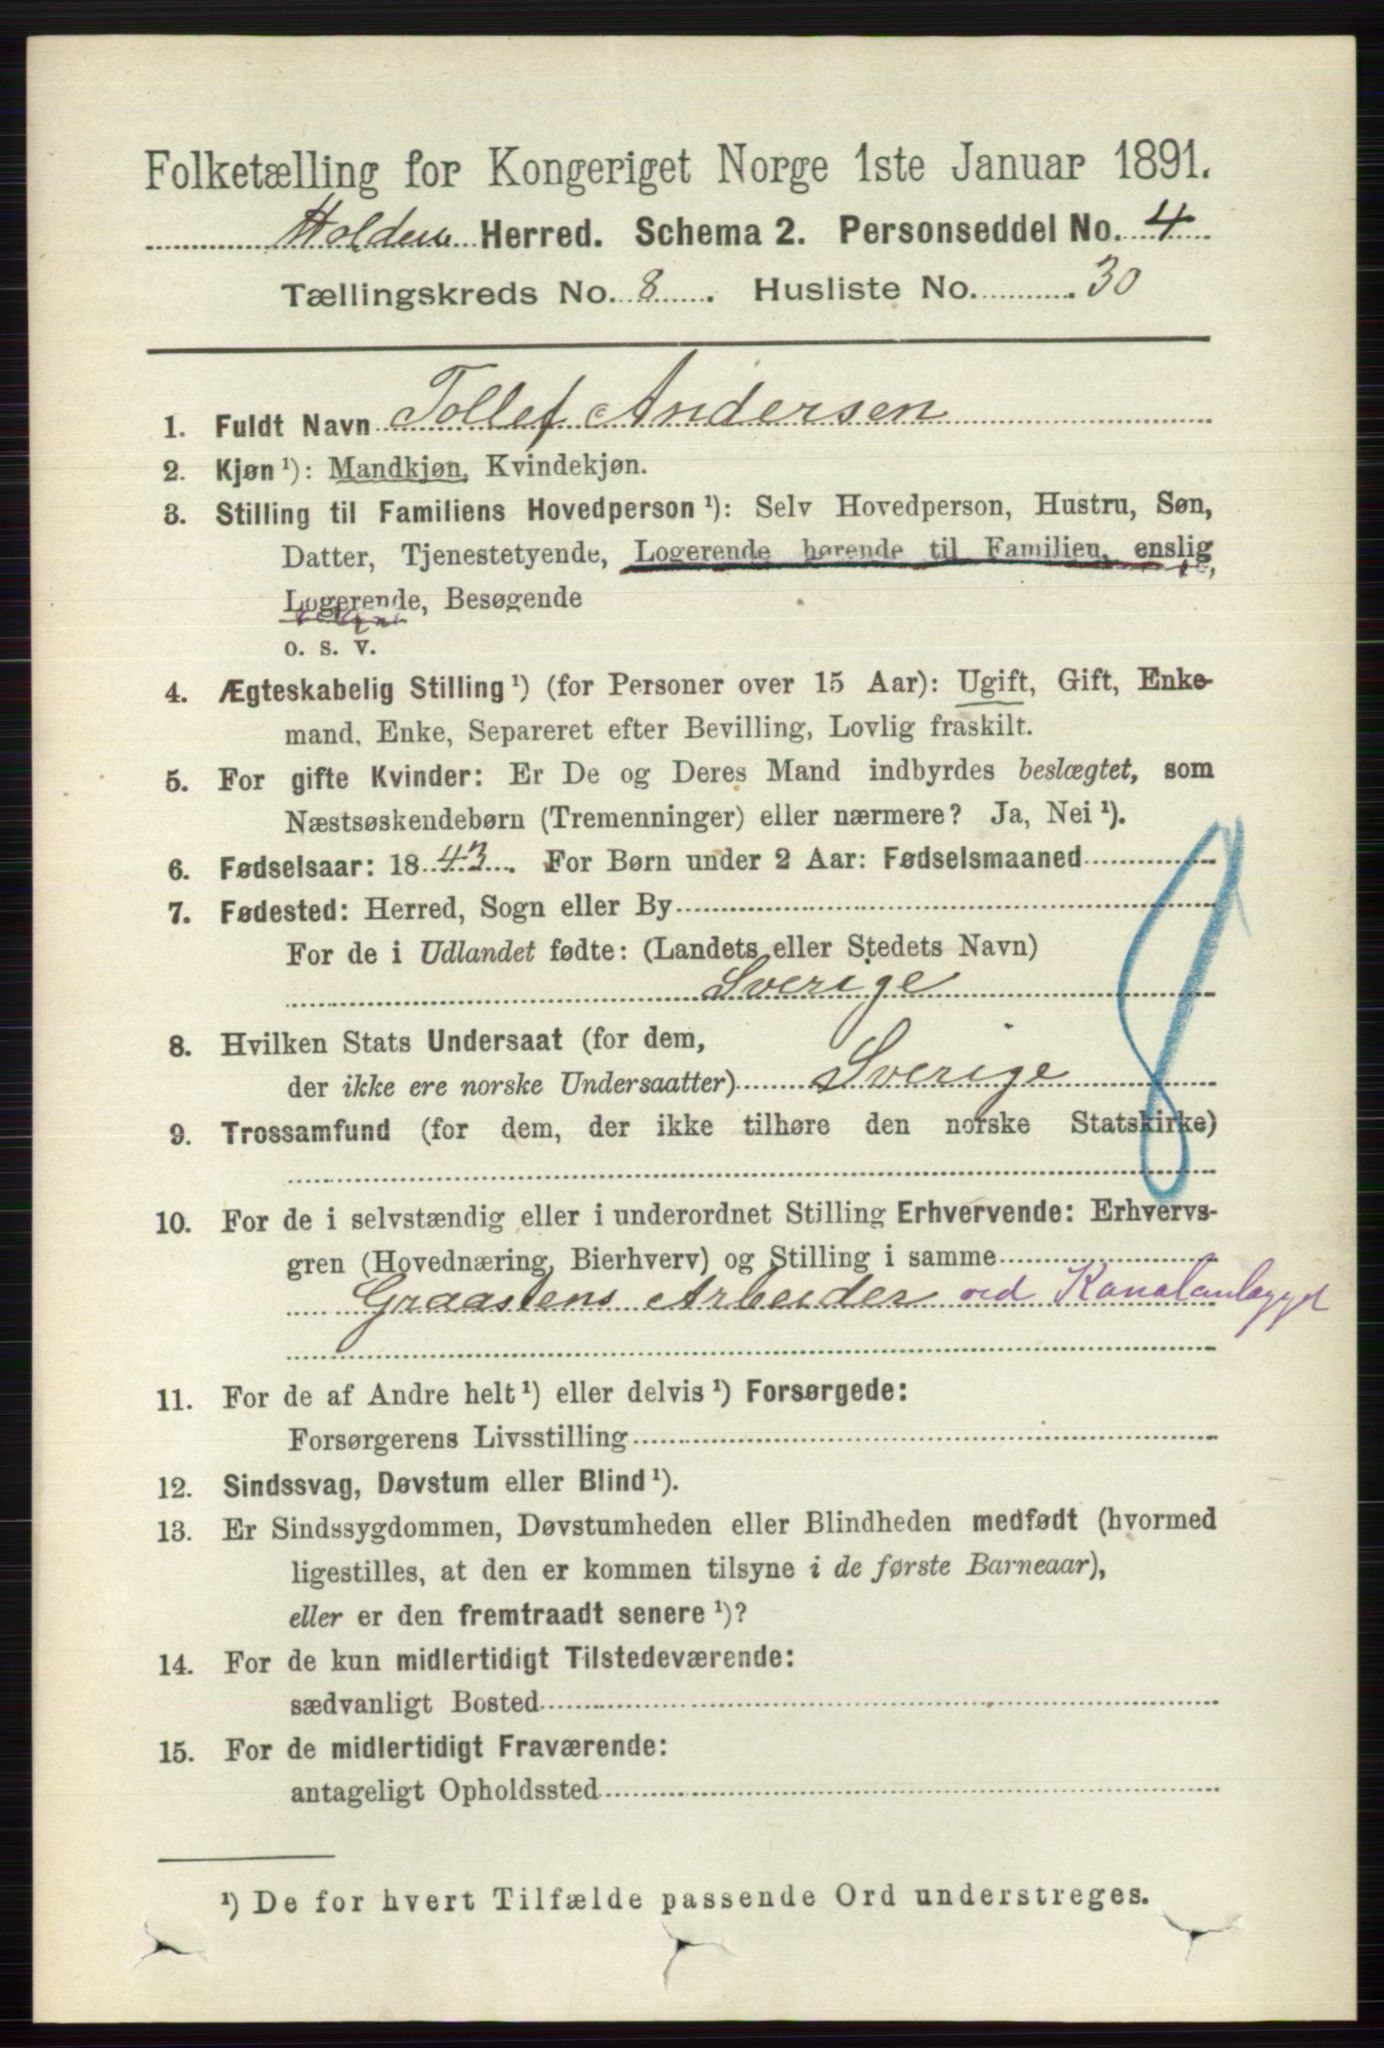 Folketælling for Kongeriget Norge 1ste Januar 1891.
Holden Herred. Schema 2. Personseddel No. 4
Tællingskreds No. 8. Husliste No. 30
1. Fuldt Navn Tollef Andersen
2. Kjøn ¹): Mandkjøn, Kvindekjøn.
3. Stilling til Familiens Hovedperson ¹): Selv Hovedperson, Hustru, Søn,
Datter, Tjenestetyende, Logerende hørende til Familien, enslig
Logerende, Besøgende
o. s. v.
4. Ægteskabelig Stilling ¹) (for Personer over 15 Aar): Ugift, Gift, Enke-
mand, Enke, Separeret efter Bevilling, Lovlig fraskilt.
5. For gifte Kvinder: Er De og Deres Mand indbyrdes beslægtet, som
Næstsøskendebørn (Tremenninger) eller nærmere? Ja, Nei ¹).
6. Fødselsaar: 1843. For Børn under 2 Aar: Fødselsmaaned
7. Fødested: Herred, Sogn eller By
For de i Udlandet fødte: (Landets eller Stedets Navn)
Sverige
8. Hvilken Stats Undersaat (for dem,
der ikke ere norske Undersaatter) Sverige
9. Trossamfund (for dem, der ikke tilhøre den norske Statskirke)
10. For de i selvstændig eller i underordnet Stilling Erhvervende: Erhvervs-
gren (Hovednæring, Bierhverv) og Stilling i samme
Graastens Arbeider ved Kanalanlægget
11. For de af Andre helt ¹) eller delvis ¹) Forsørgede:
Forsørgerens Livsstilling
12. Sindssvag, Døvstum eller Blind ¹).
13. Er Sindssygdommen, Døvstumheden eller Blindheden medfødt (hvormed
ligestilles, at den er kommen tilsyne i de første Barneaar),
eller er den fremtraadt senere ¹)?
14. For de kun midlertidigt Tilstedeværende:
sædvanligt Bosted
15. For de midlertidigt Fraværende:
antageligt Opholdssted
¹) De for hvert Tilfælde passende Ord understreges.